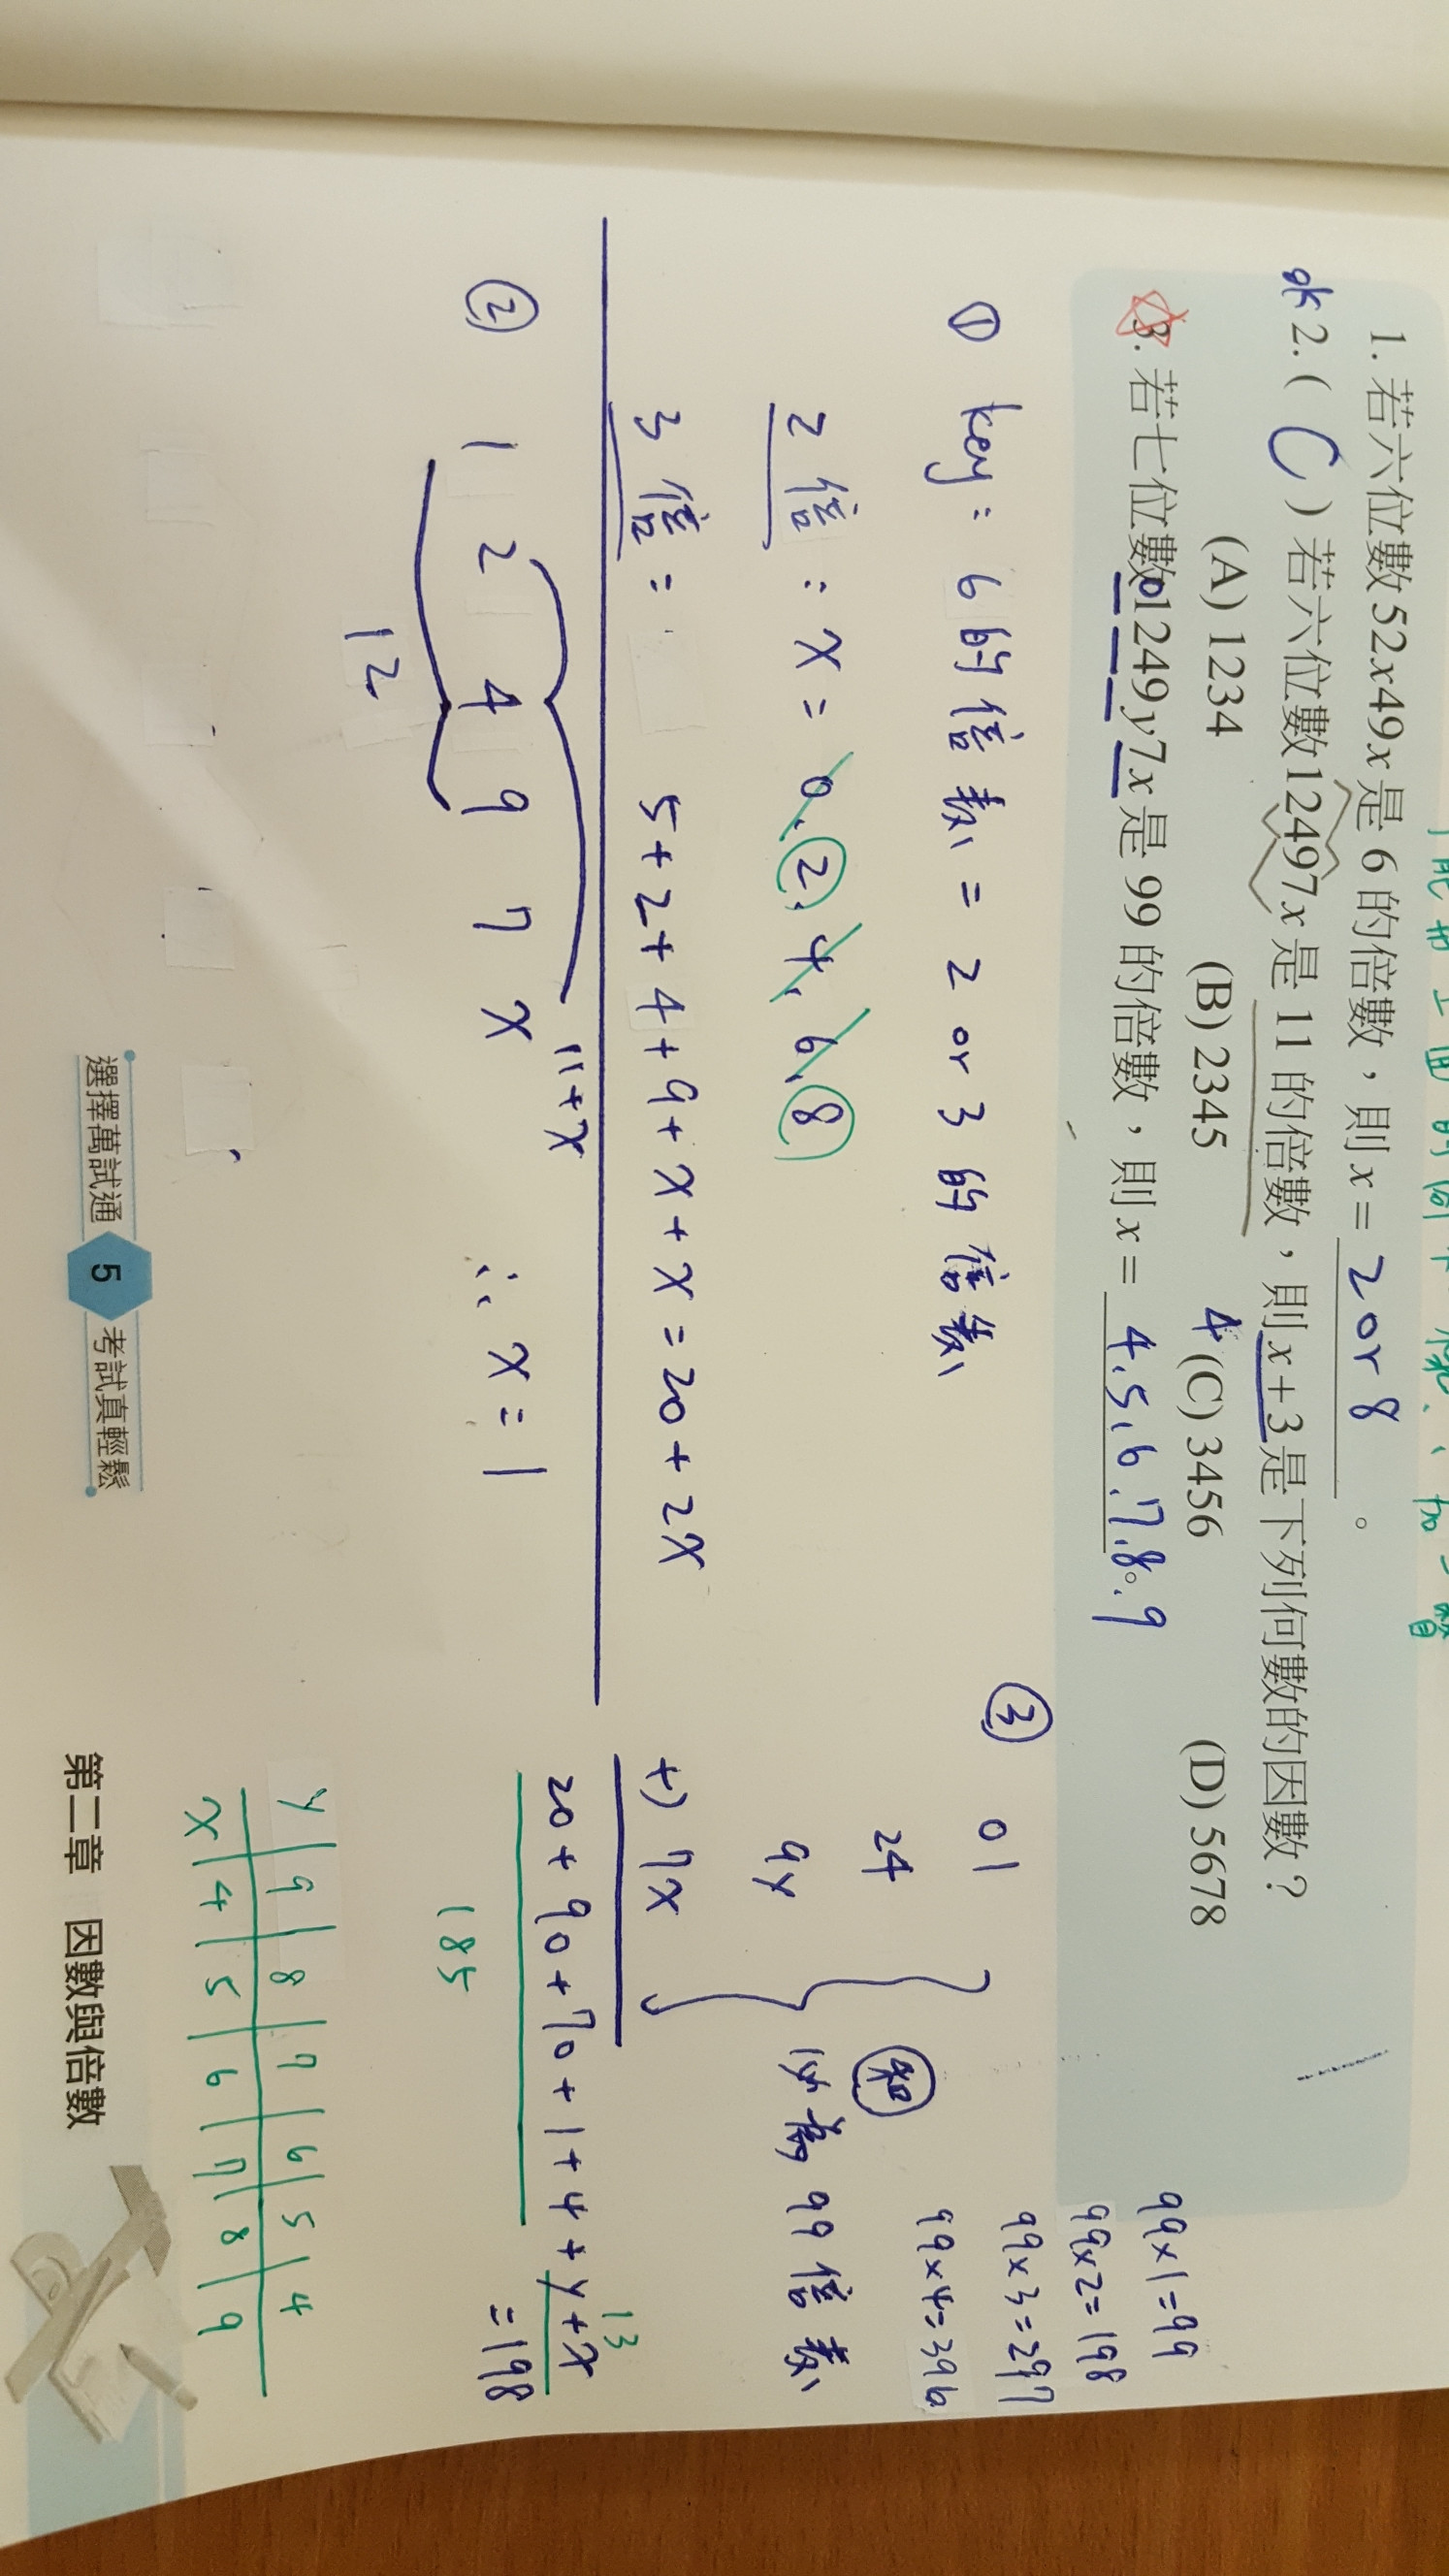 1. 若六位數52x49x是6的倍數，則x= 2 or 8 。
ok 2.( C )若六位數12497x是11的倍數，則x+3是下列何數的因數？
(A) 1234 (B) 2345 4 (C) 3456 (D) 5678
3. 若七位數01249y7x是99的倍數，則x= 4.5.6.7.8.9 。
① key: 6的倍數 = 2 or 3 的倍數
2倍: x = 0.2.4.6.8
3倍: 5+2+4+9+x+x = 20+2x
② 1 2 4 9 7 x
11+x
12
∴ x = 1
③ 01
24
9y
+) 7x
和
必為 99 倍數
20+90+70+1+4+y+x
13
=198
185
99x1=99
99x2=198
99x3=297
99x4=396
y 9 8 7 6 5 4
x 4 5 6 7 8 9
選擇萬試通 5 考試真輕鬆
第二章 因數與倍數